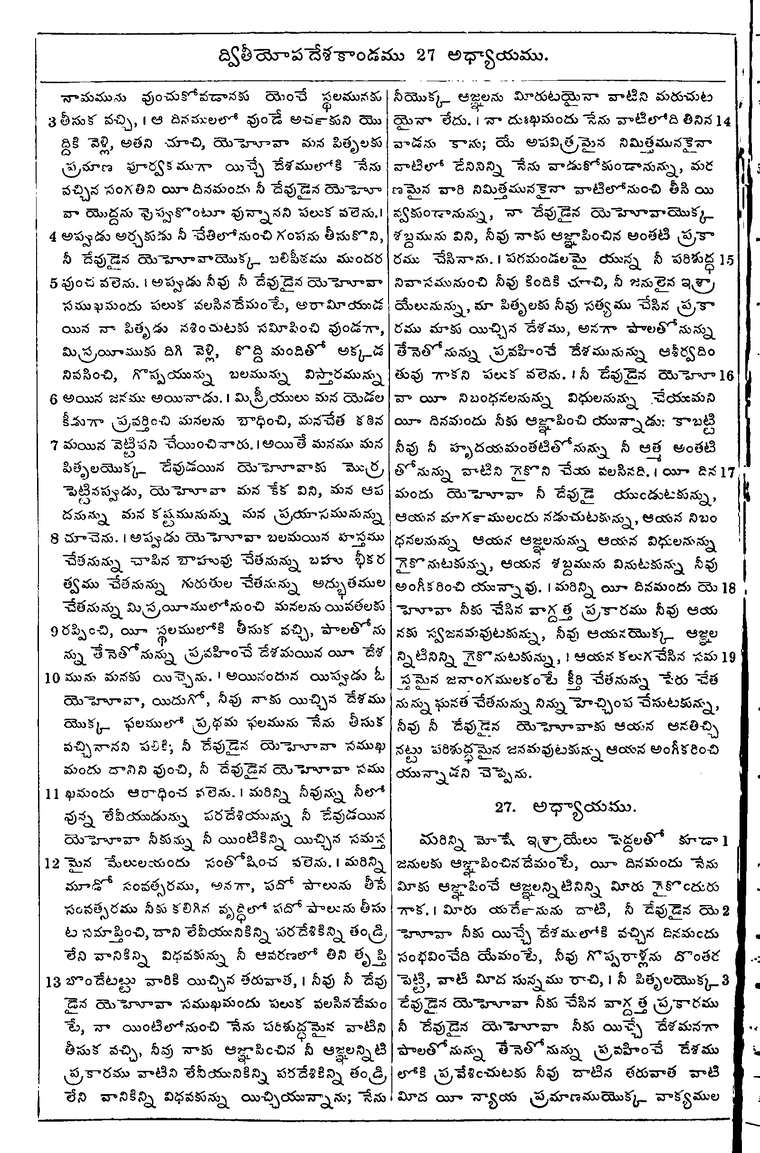 ద్వితీయోపదేశకాండము 27 అధ్యాయము.
నామమును వుంచుకోవడానకు యెంచే స్థలమునకు
3 తీసుక వచ్చి, । ఆ దినములలో వుండే అర్చకుని యొ
ద్దికి వెళ్లి, అతని చూచి, యెహోవా మన పితృలకు
ప్రమాణ పూర్వకముగా యిచ్చే దేశములోకి నేను
వచ్చిన సంగతిని యీ దినమందు నీ దేవుడైన యెహో
వా యొద్దను వొప్పుకొంటూ వున్నానని పలుక వలెను.।
4 అప్పుడు అర్చకుడు నీ చేతిలోనుంచి గంపను తీసుకొని,
నీ దేవుడైన యెహోవాయొక్క బలిపీఠము ముందర
5 వుంచ వలెను. । అప్పుడు నీవు నీ దేవుడైన యెహోవా
సముఖమందు పలుక వలసినదేమంటే, అరామీయుడ
యిన నా పితృడు నశించుటకు సమీపించి వుండగా,
మిస్రయీముకు దిగి వెళ్లి, కొద్ది మందితో అక్కడ
నివసించి, గొప్పయున్ను బలమున్ను విస్తారమున్ను
6 అయిన జనము అయినాడు. । మిస్రీయులు మన యెడల
కీడుగా ప్రవర్తించి మనలను బాధించి, మనచేత కఠిన
7 మయిన వెట్టిపని చేయించినారు. । అయితే మనము మన
పితృలయొక్క దేవుడయిన యెహోవాకు మొర్ర
పెట్టినప్పుడు, యెహోవా మన కేక విని, మన ఆప
దనున్ను మన కష్టమునున్ను మన ప్రయాసమునున్ను
8 చూచెను. । అప్పుడు యెహోవా బలమయిన హస్తము
చేతనున్ను చాపిన బాహువు చేతనున్ను బహు భీకర
త్వము చేతనున్ను గురుతుల చేతనున్ను అద్భుతముల
చేతనున్ను మిస్రయీములోనుంచి మనలను యివతలకు
9 రప్పించి, యీ స్థలములోకి తీసుక వచ్చి, పాలతోను
న్ను తేనెతోనున్ను ప్రవహించే దేశమయిన యీ దేశ
10 మును మనకు యిచ్చెను. । అయినందున యిప్పుడు ఓ
యెహోవా, యిదుగో, నీవు నాకు యిచ్చిన దేశము
యొక్క ఫలములలో ప్రథమ ఫలమును నేను తీసుక
వచ్చినానని పలికి; నీ దేవుడైన యెహోవా సముఖ
మందు దానిని వుంచి, నీ దేవుడైన యెహోవా సము
11 ఖమందు ఆరాధించ వలెను. । మరిన్ని నీవున్ను నీలో
వున్న లేవీయుడున్ను పరదేశియున్ను నీ దేవుడయిన
యెహోవా నీకున్ను నీ యింటికిన్ని యిచ్చిన సమస్త
12 మైన మేలులయందు సంతోషించ వలెను. । మరిన్ని
మూడో సంవత్సరము, అనగా, పదో పాలును తీసే
సంవత్సరము నీకు కలిగిన వృద్ధిలో పదో పాలును తీసు
ట సమాప్తించి, దాని లేవీయునికిన్ని పరదేశికిన్ని తండ్రి
లేని వానికిన్ని విధవకున్ను నీ ఆవరణలో తిని తృప్తి
13 బొందేటట్టు వారికి యిచ్చిన తరువాత, । నీవు నీ దేవు
డైన యెహోవా సముఖమందు పలుక వలసినదేమం
టే, నా యింటిలోనుంచి నేను పరిశుద్ధమైన వాటిని
తీసుక వచ్చి, నీవు నాకు ఆజ్ఞాపించిన నీ ఆజ్ఞలన్నిటి
ప్రకారము వాటిని లేవీయునికిన్ని పరదేశికిన్ని తండ్రి
లేని వానికిన్ని విధవకున్ను యిచ్చియున్నాను; నేను
నీయొక్క ఆజ్ఞలను మీరుటయైనా వాటిని మరుచుట
యైనా లేదు. । నా దుఃఖమందు నేను వాటిలోది తినిన 14
వాడను కాను; యే అపవిత్రమైన నిమిత్తమునకైనా
వాటిలో దేనినిన్ని నేను వాడుకోకుండానున్ను, మర
ణమైన వారి నిమిత్తమునకైనా వాటిలోనుంచి తీసి యి
వ్వకుండానున్ను, నా దేవుడైన యెహోవాయొక్క
శబ్దమును విని, నీవు నాకు ఆజ్ఞాపించిన అంతటి ప్రకా
రము చేసినాను. । పరమండలమై యున్న నీ పరిశుద్ధ 15
నివాసమునుంచి నీవు కిందికి చూచి, నీ జనులైన ఇశ్రా
యేలునున్ను, మా పితృలకు నీవు సత్యము చేసిన ప్రకా
రము మాకు యిచ్చిన దేశము, అనగా పాలతోనున్ను
తేనెతోనున్ను ప్రవహించే దేశమునున్ను ఆశీర్వదిం
తువు గాకని పలుక వలెను. । నీ దేవుడైన యెహో 16
వా యీ నిబంధనలనున్ను విధులనున్ను చేయుమని
యీ దినమందు నీకు ఆజ్ఞాపించి యున్నాడు: కాబట్టి
నీవు నీ హృదయమంతటితోనున్ను నీ ఆత్మ అంతటి
తోనున్ను వాటిని గైకొని చేయ వలసినది. । యీ దిన 17
మందు యెహోవా నీ దేవుడై యుండుటకున్ను,
ఆయన మార్గములందు నడుచుటకున్ను, ఆయన నిబం
ధనలనున్ను ఆయన ఆజ్ఞలనున్ను ఆయన విధులనున్ను
గైకొనుటకున్ను, ఆయన శబ్దమును వినుటకున్ను నీవు
అంగీకరించి యున్నావు. । మరిన్ని యీ దినమందు యె 18
హోవా నీకు చేసిన వాగ్దత్త ప్రకారము నీవు ఆయ
నకు స్వజనమవుటకున్ను, నీవు ఆయనయొక్క ఆజ్ఞల
న్నిటినిన్ని గైకొనుటకున్ను, । ఆయన కలుగచేసిన సమ 19
స్తమైన జనాంగములకంటే కీర్తి చేతనున్ను పేరు చేత
నున్ను ఘనత చేతనున్ను నిన్ను హెచ్చింప చేసుటకున్ను,
నీవు నీ దేవుడైన యెహోవాకు ఆయన ఆనతిచ్చి
నట్టు పరిశుద్ధమైన జనమవుటకున్ను ఆయన అంగీకరించి
యున్నాడని చెప్పెను.
27. అధ్యాయము.
మరిన్ని మోషే ఇశ్రాయేలు పెద్దలతో కూడా 1
జనులకు ఆజ్ఞాపించినదేమంటే, యీ దినమందు నేను
మీకు ఆజ్ఞాపించే ఆజ్ఞలన్నిటినిన్ని మీరు గైకొందురు
గాక. । మీరు యర్దేనును దాటి, నీ దేవుడైన యె 2
హోవా నీకు యిచ్చే దేశములోకి వచ్చిన దినమందు
సంభవించేది యేమంటే, నీవు గొప్పరాళ్లను దొంతర
పెట్టి, వాటి మీద సున్నము రాచి, । నీ పితృలయొక్క 3
దేవుడైన యెహోవా నీకు చేసిన వాగ్దత్త ప్రకారము
నీ దేవుడైన యెహోవా నీకు యిచ్చే దేశమనగా
పాలతోనున్ను తేనెతోనున్ను ప్రవహించే దేశము
లోకి ప్రవేశించుటకు నీవు దాటిన తరువాత వాటి
మీద యీ న్యాయ ప్రమాణముయొక్క వాక్యముల